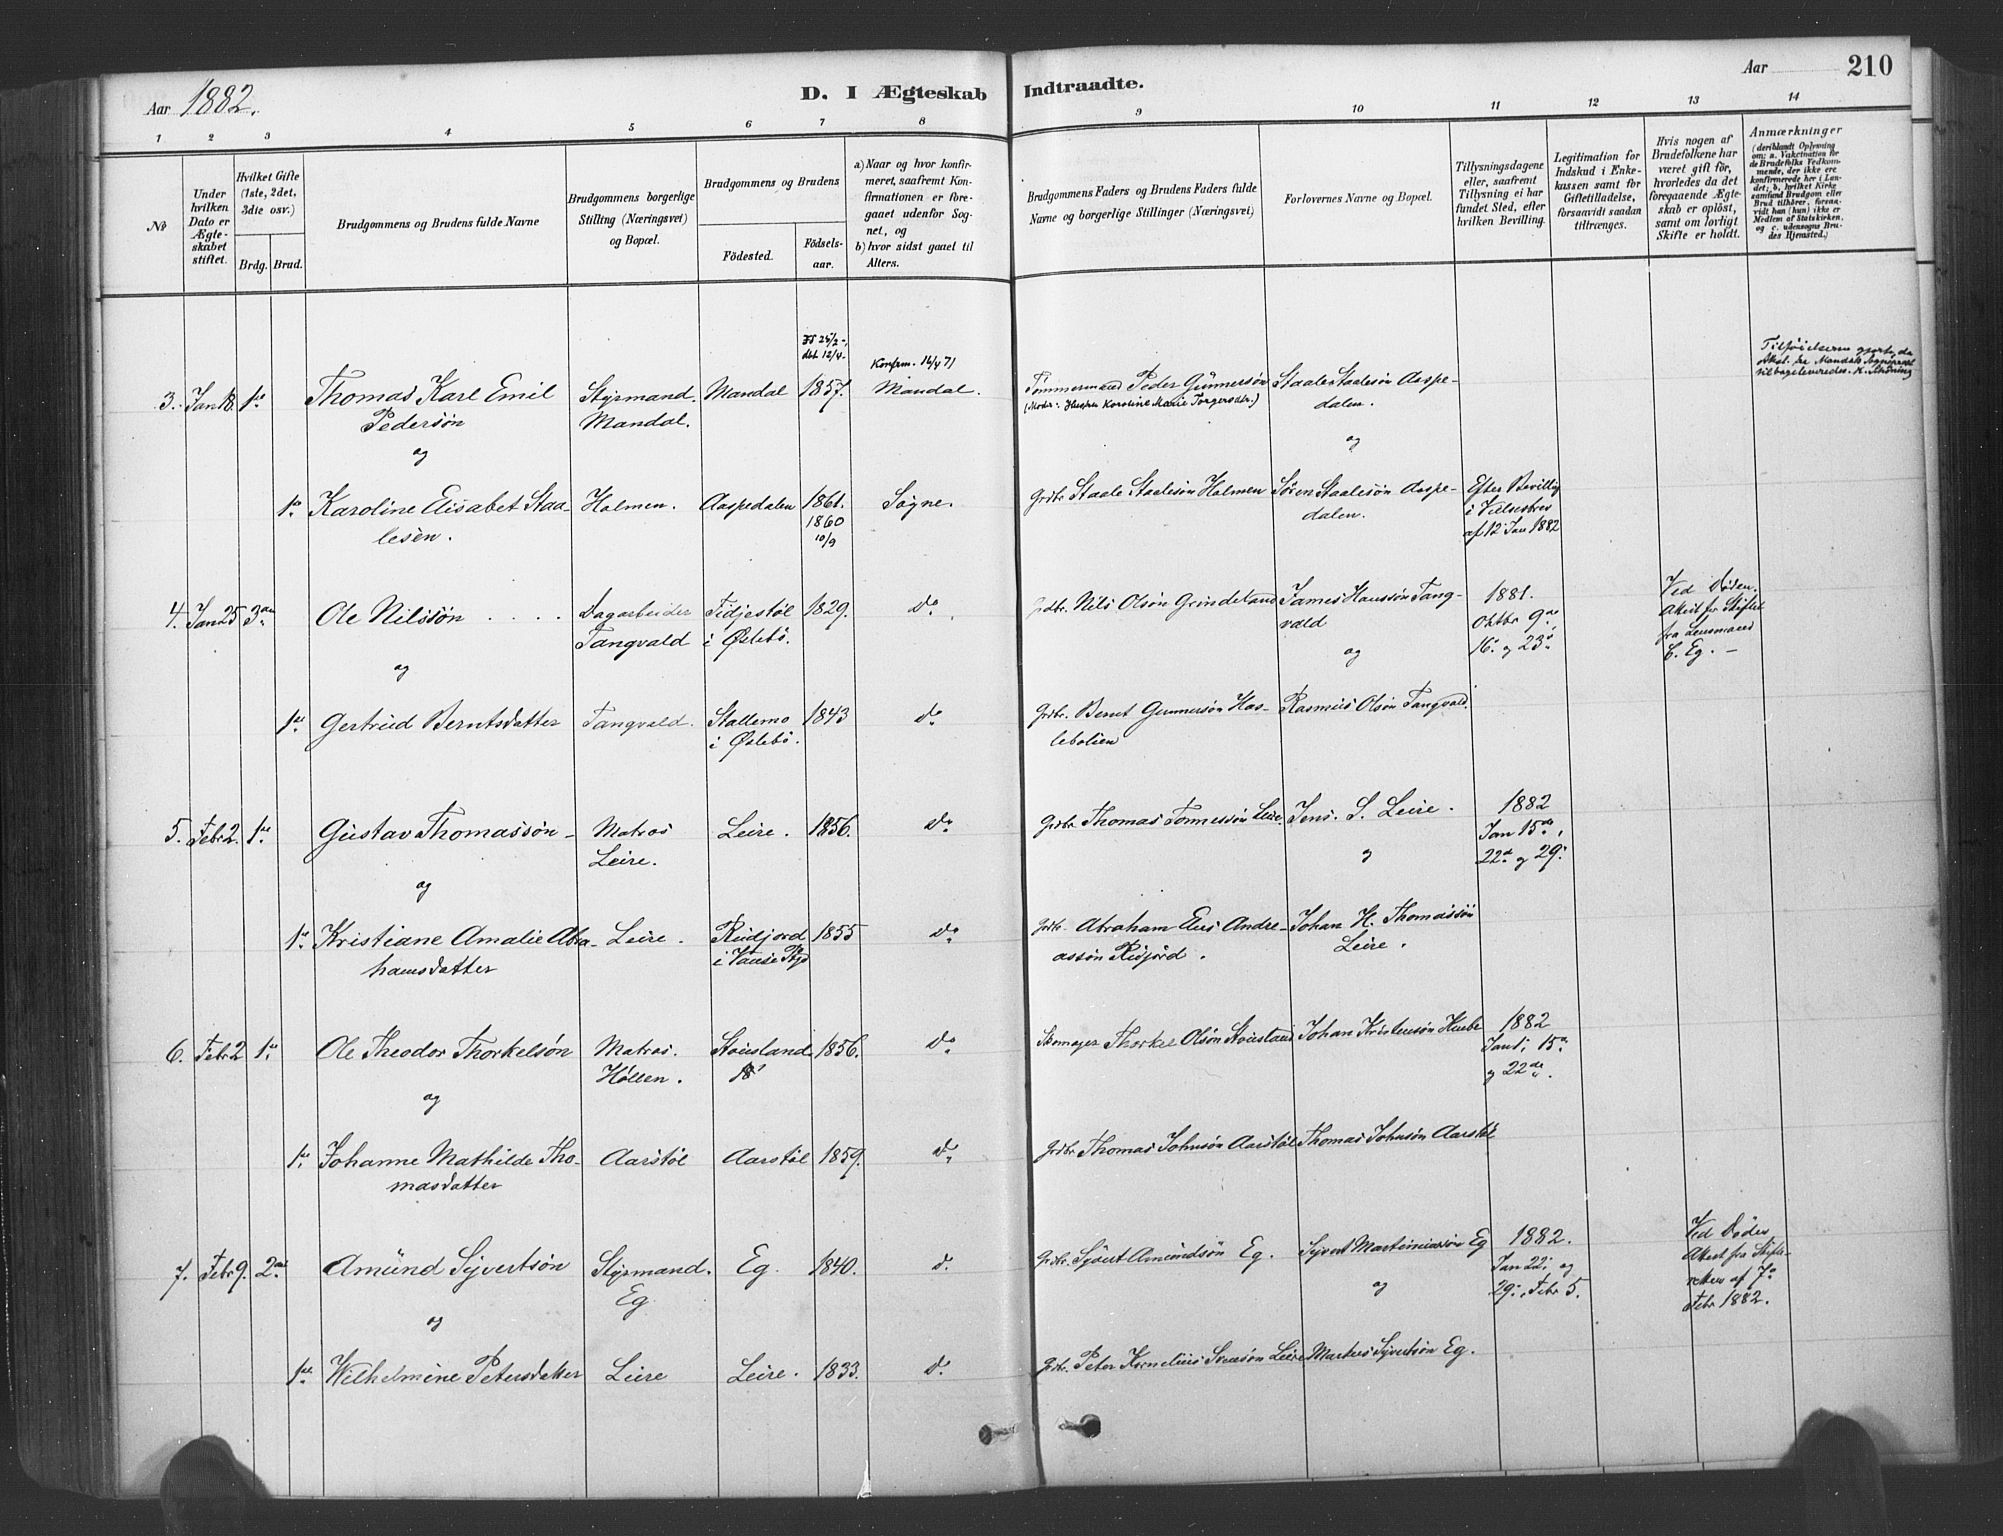 Aar 1882.
D. I Ægteskab Indtraadte.
Aar
210
1 2 3 4 5 6 7 8 9 10 11 12 13 14
No
Under hvilken Dato er Ægteskabet stiftet.
Hvilket Gifte (1ste, 2det, 3die osv.)
Brdg. Brud.
Brudgommens og Brudens fulde Navne
Brudgommens borgerlige Stilling (Næringsvei) og Bopæl.
Brudgommens og Brudens
Födested.
Födselsaar.
a) Naar og hvor konfirmeret, saafremt Konfirmationen er foregaaet udenfor Sognet, og
b) hvor sidst gaaet til Alters.
Brudgommens Faders og Brudens Faders fulde Navne og borgerlige Stillinger (Næringsvei)
Forlovernes Navne og Bopæl.
Tillysningsdagene eller, saafremt Tillysning ei har fundet Sted, efter hvilken Bevilling.
Legitimation for Indskud i Enkekassen samt for Giftetilladelse, forsaavidt saadan tiltrænges.
Hvis nogen af Brudefolkene har været gift før, hvorledes da det foregaaende Ægteskab er opløst, samt om lovligt Skifte er holdt.
Anmærkninger (deriblandt Oplysning om: a. Vakcination for de Brudefolks Vedkommende, der ikke ere konfirmerede her i Landet; b. hvilket Kirkesamfund Brudgom eller Brud tilhører, forsaavidt han (hun) ikke er Medlem af Statskirken, og c. udensogns Brudes Hjemsted.)
3. Jan 18. 1ste Thomas Karl Emil Pedersön
Styrmand Mandal.
Mandal
1857.
Konfirm. 16/4 71
Mandal.
Tømmermand Peder Gunnersön
(Moder: Hustru Karoline Marie Torgersdtr.)
Staale Staalesön Aaspedalen.
og
og
1ste Karoline Elisabet Staalesen.
Holmen.
Aaspedalen
1861.
1860
10/9
Sögne.
Grdbr. Staale Staalesön Holmen
Sören Staalesön Aaspedalen.
Efter Bevilling i Vielsesbrev af 12 Jan 1882
4. Jan 25 3die Ole Nilssön
Dagarbeider Tangvald
Fidjestöl i Öslebö.
1829.
do
Grdbr. Nils Olsön Grindeland
James Hanssön Tangvald
og
1881.
Oktbr 9de, 16. og 23de
Ved Döden. Attest fr Skiftet fra Lensmand E. Eg. –
og
1ste Gertrud Berntsdatter
Tangvald.
Stallemo i Öslebö.
1843
do
Grdbr. Bernt Gunnersön Haslebolien
Rasmus Olsön Tangvald.
5. Febr 2. 1ste Gustav Thomassön
Matros Leire.
Leire.
1856.
do
Grdbr Thomas Tönnessön Leire.
Jens. S. Leire.
og
1882
Jan 15de, 22d og 29.
og
1ste Kristiane Amalie Abrahamsdatter
Leire.
Rudjord i Vanse Pgd
1855
do
Grdbr. Abraham Elis Andreassön Ridjord.
Johan H. Thomassön Leire.
6. Febr 2 1ste Ole Theodor Thorkelsön
Matros. Höllen.
Stousland
1856.
do
Skomager Thorkel Olsön Stousland
Johan Kristensön Hunbe
1882
Jan 1; 15de og 22de.
og
1ste Johanne Mathilde Thomasdatter
Aarstöl
Aarstöl
1859.
do
Grdbr Thomas Johnsön Aarstöl
Thomas Johnsön Aarstöl
7. Febr 9. 2den Amund Syvertsön
Styrmand. Eg
Eg.
1840.
do
Grdbr. Syvert Amundsön Eg.
Syvert Martiniussön Eg
og
1882.
Jan 22; og 29; Febr 5.
Ved Döden Attest fra Skifteretten af 7de Febr 1882.
og
1ste Wilhelmine Petersdatter
Leire
Leire.
1833.
do
Grdbr. Peter Kornelius Svensön Leire
Markus Syvertsön Eg.